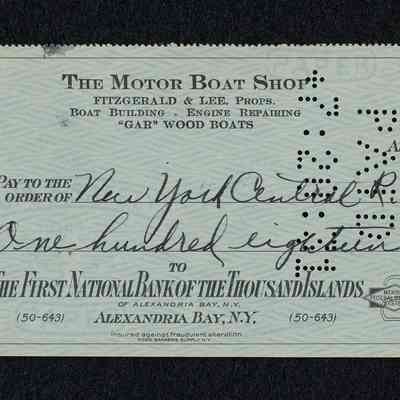 THE MOTOR BOAT SHOP
FITZGERALD & LEE, PROPS.
BOAT BUILDING - ENGINE REPAIRING
"GAR" WOOD BOATS
PAY TO THE
ORDER OF New York Central R.
One hundred eighteen
TO
THE FIRST NATIONAL BANK OF THE THOUSAND ISLANDS
OF ALEXANDRIA BAY, N.Y.
(50-643) ALEXANDRIA BAY, N.Y. (50-643)
Insured against fraudulent alteration